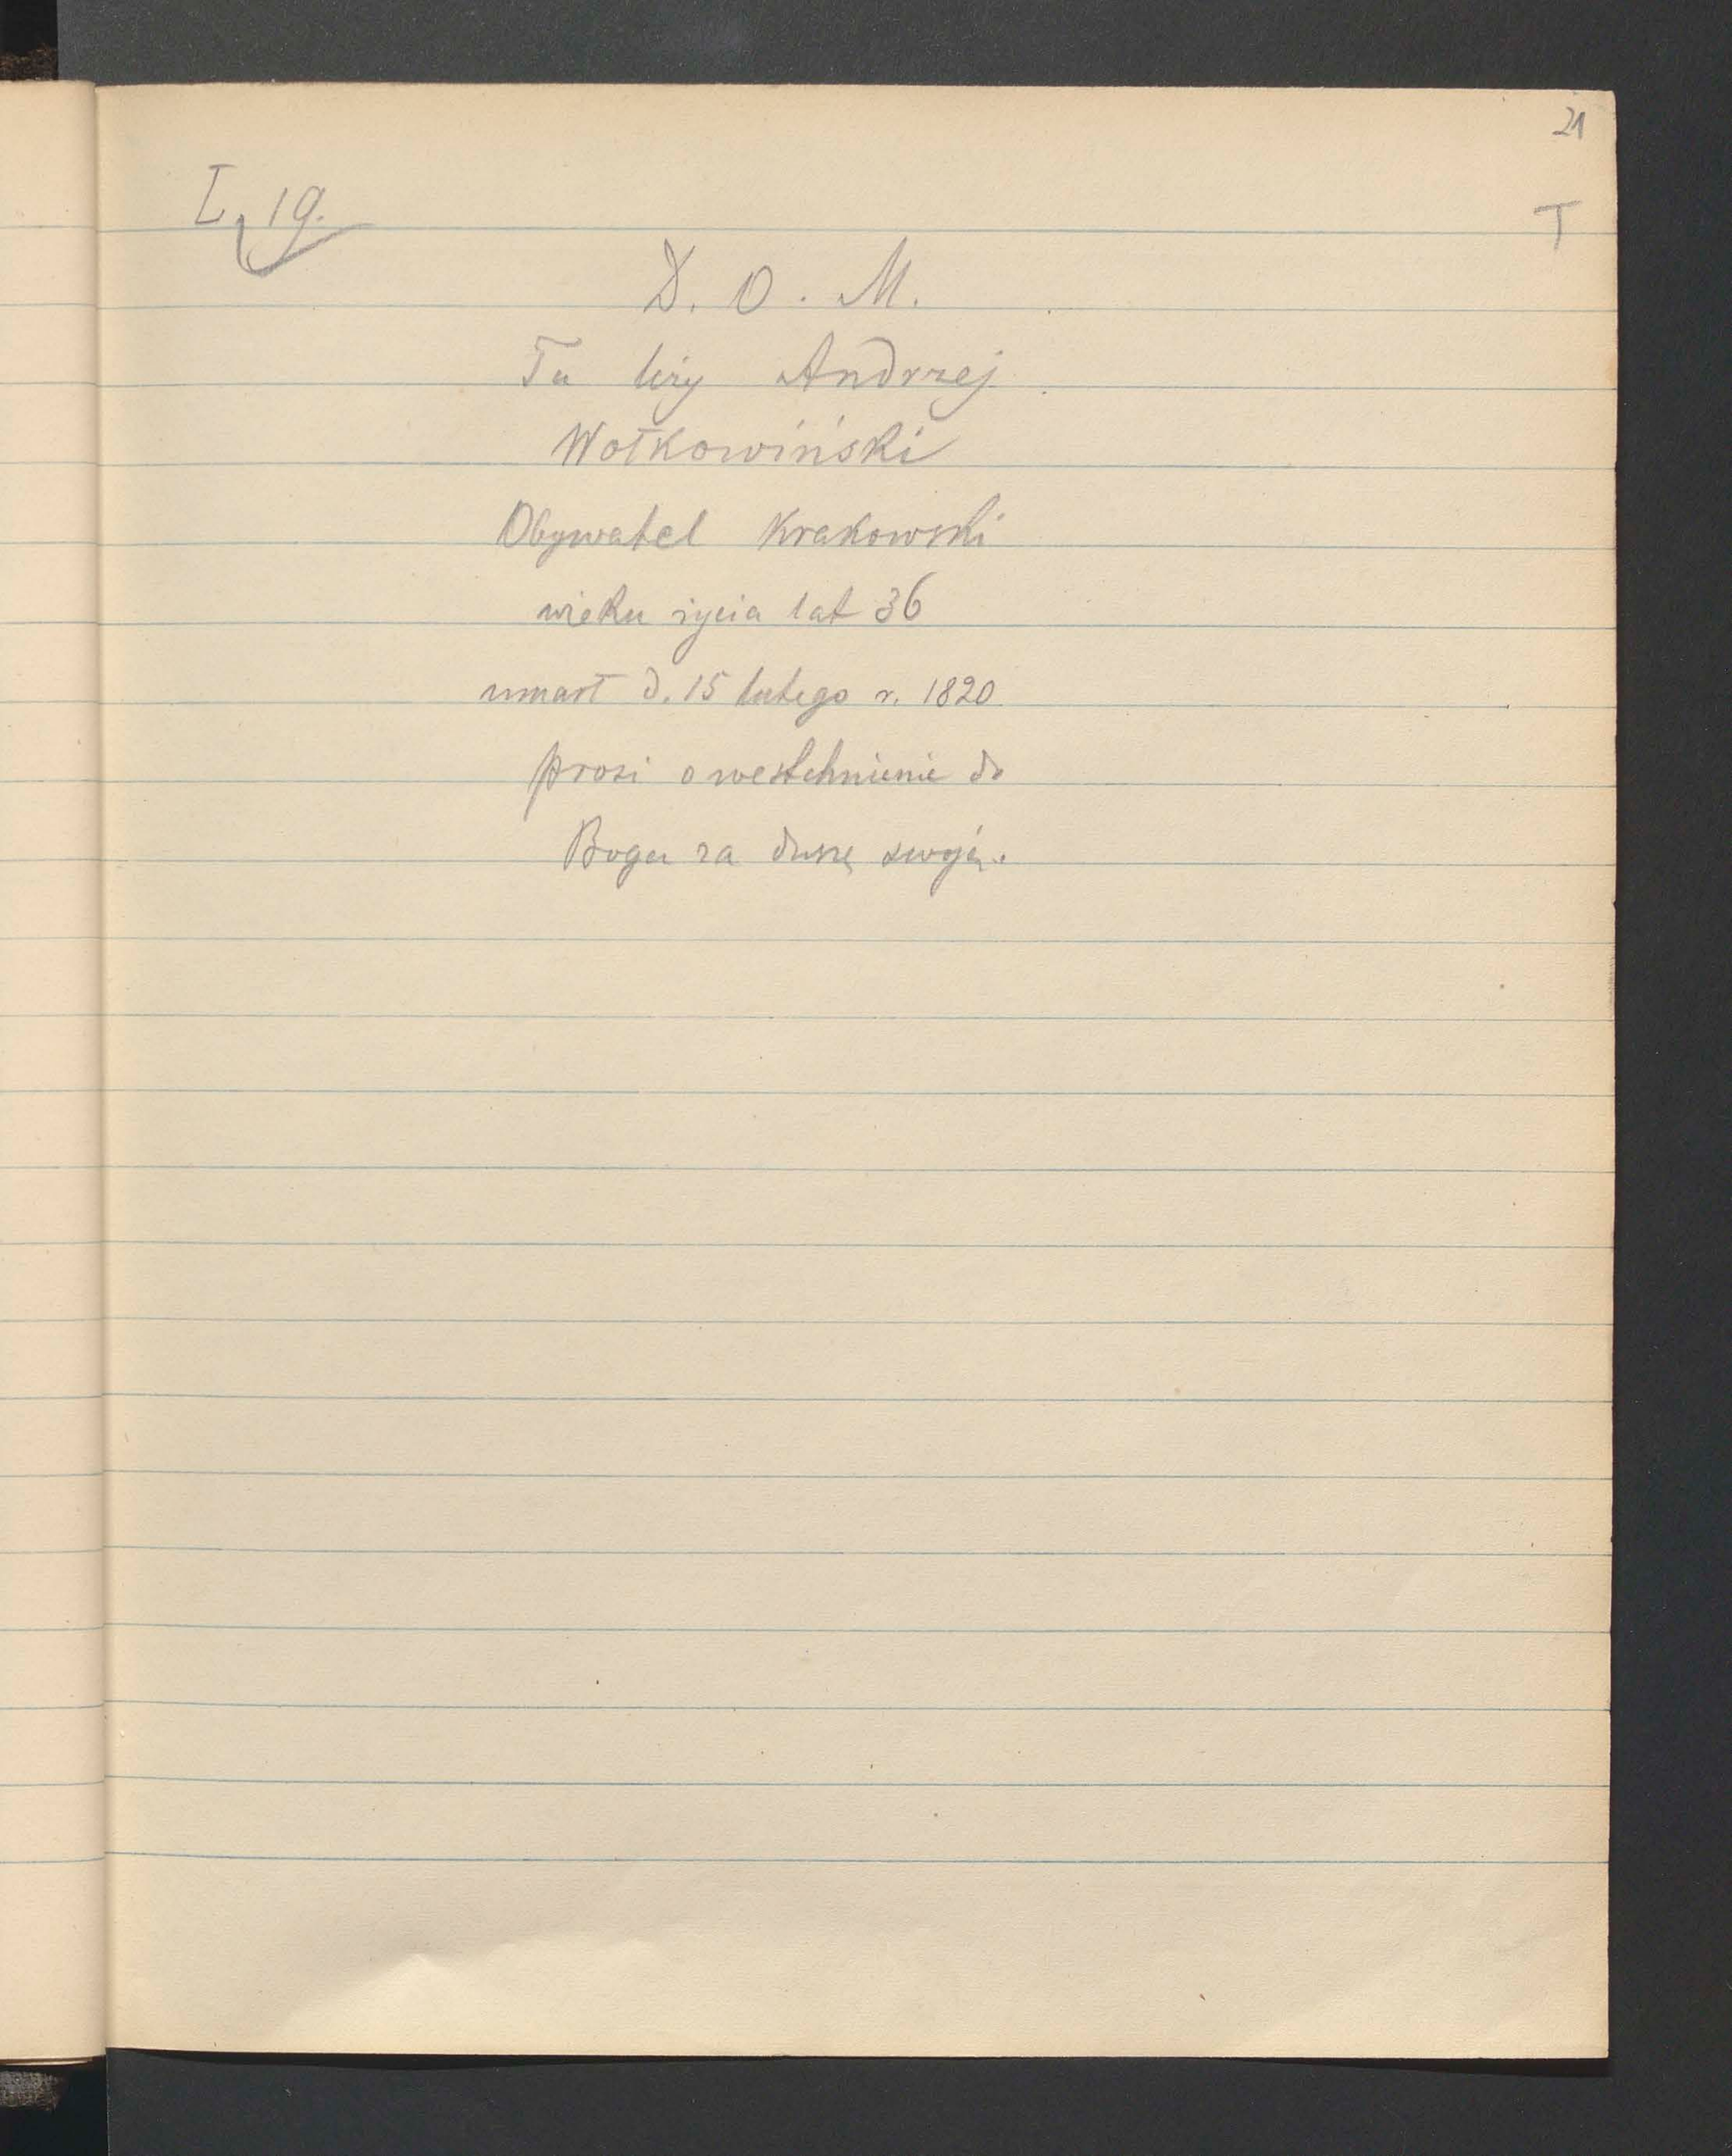 21
I, 19.
T
D. O. M.
Tu leży Andrzej
Wołkowiński
Obywatel Krakowski
wieku życia lat 36
umarł d. 15 lutego r. 1820
prosi o westchnienie do
Boga za duszę swoją.